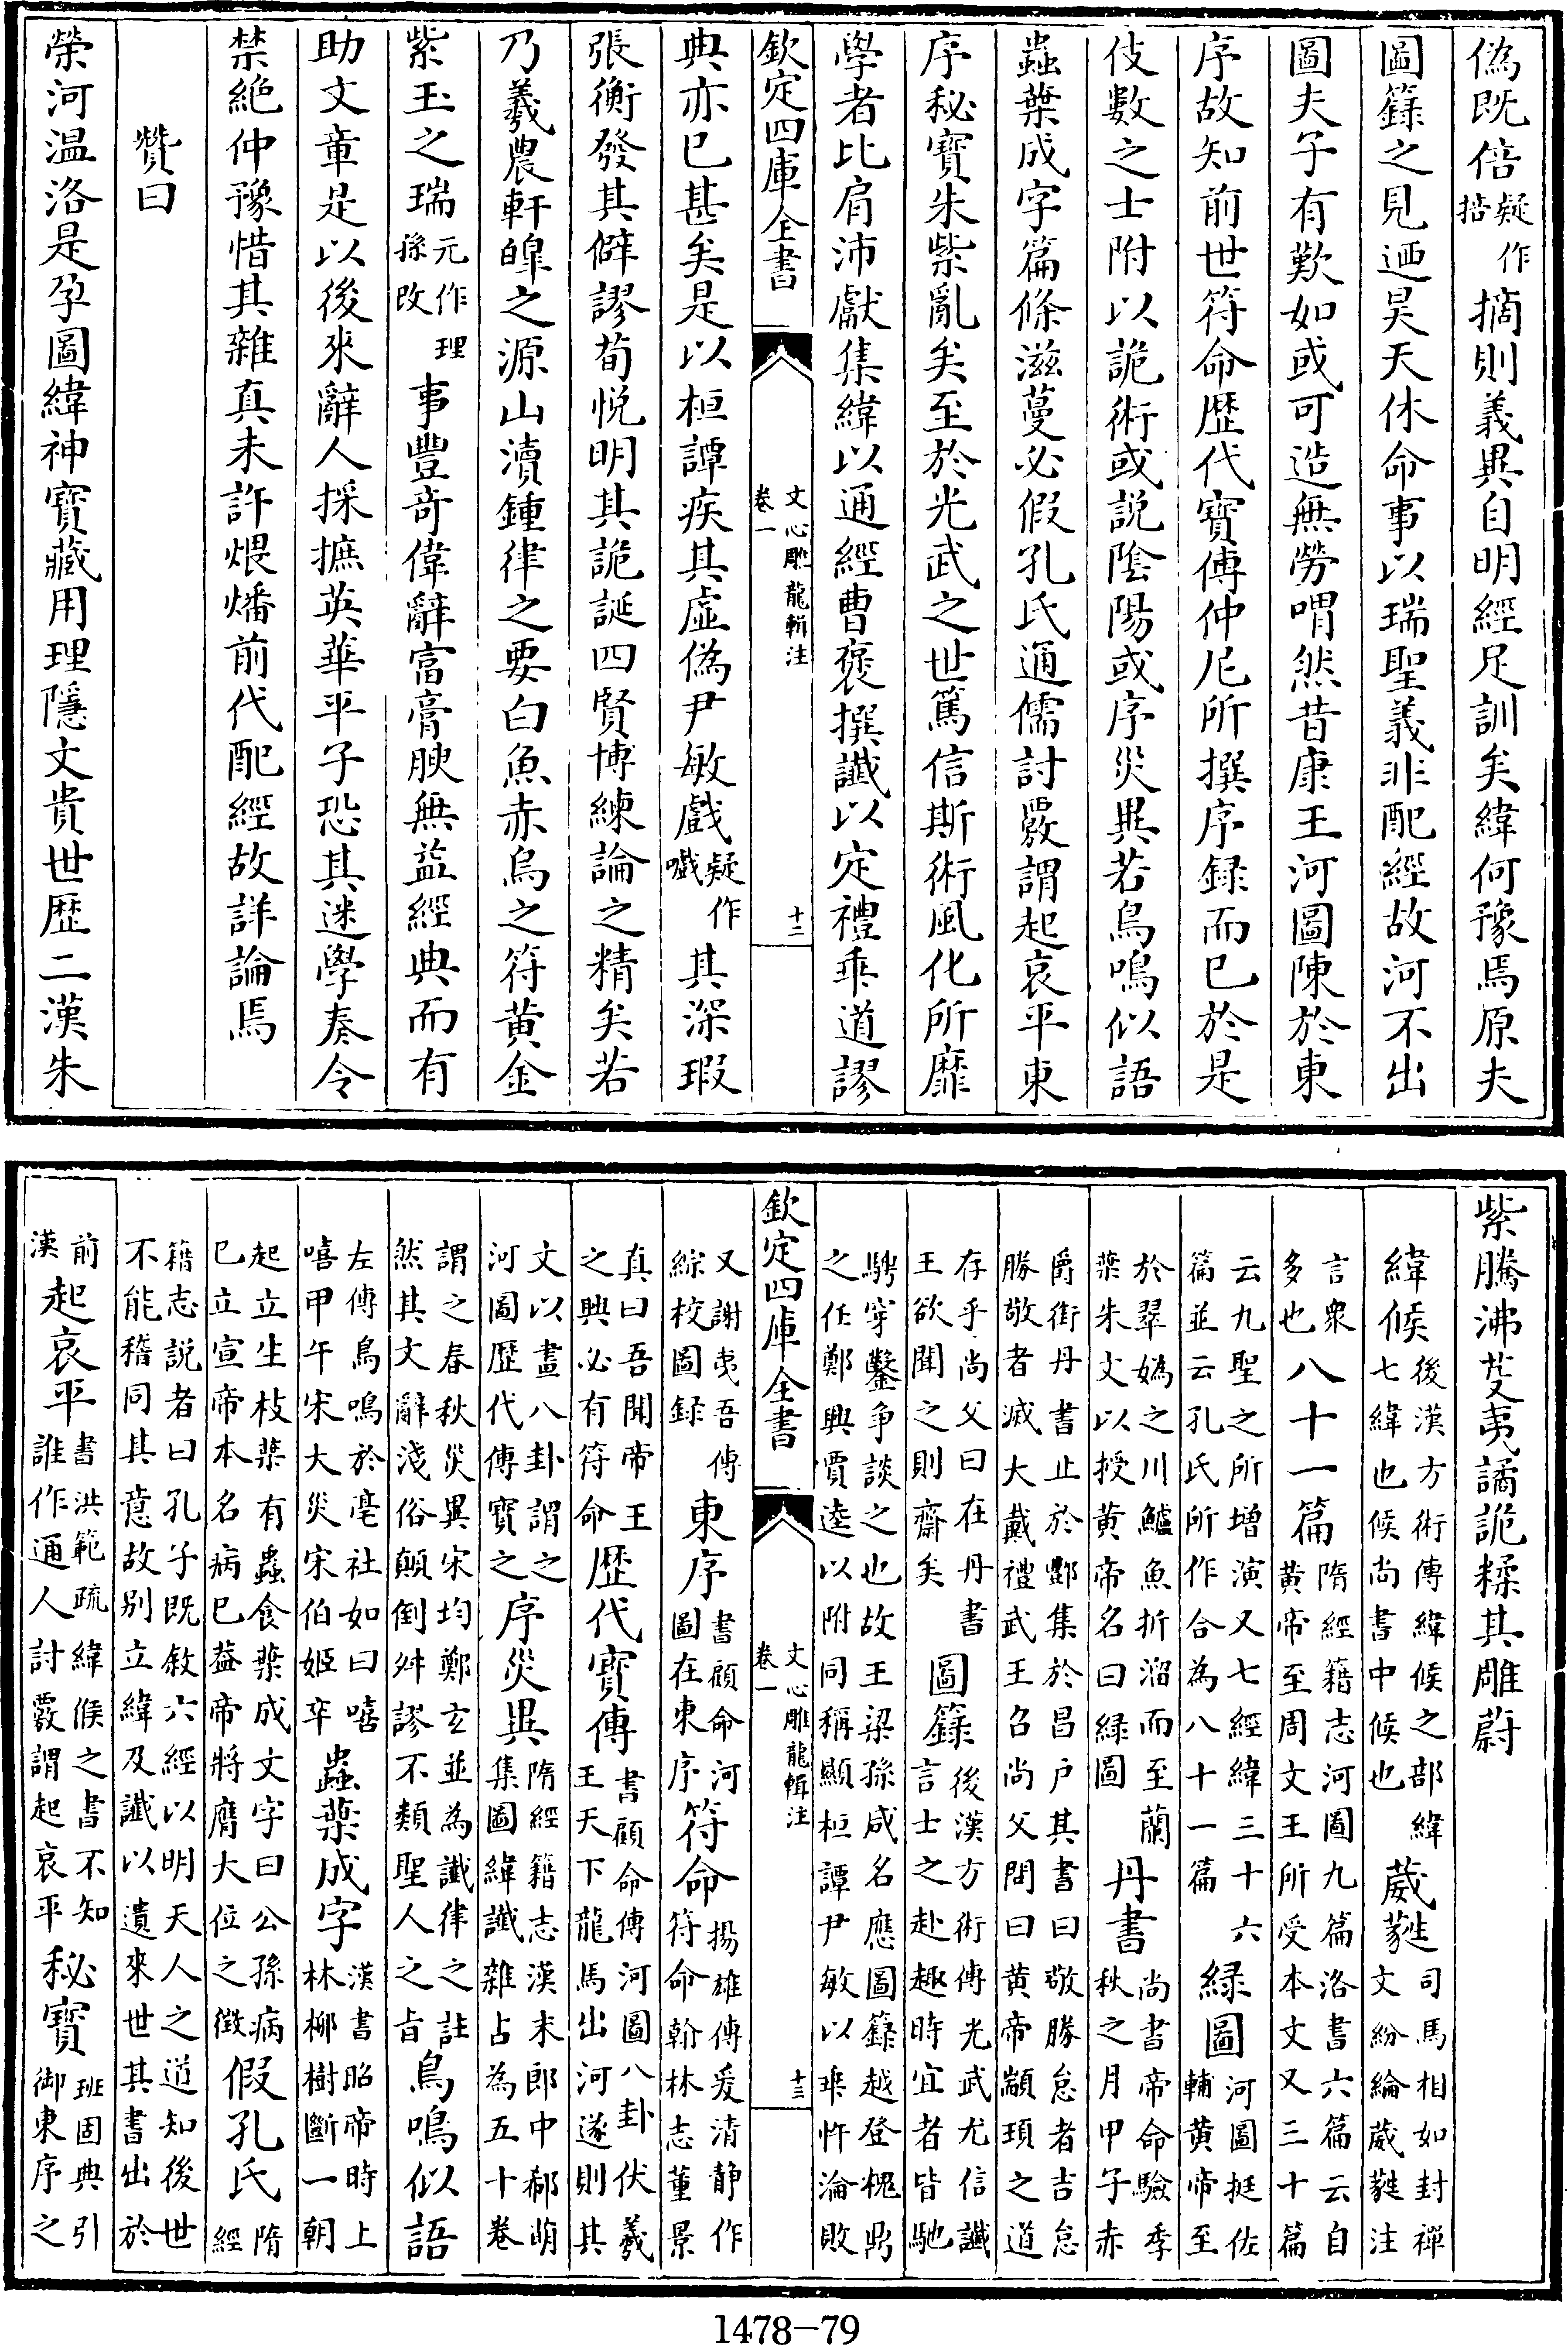 偽既倍疑作掊摘則義異自明經足訓矣緯何豫焉原夫
圖籙之見迺昊天休命事以瑞聖義非配經故河不出
圖夫子有歎如或可造無勞喟然昔康王河圖陳於東
序故知前世符命歴代寶傳仲尼所撰序録而已於是
伎數之士附以詭術或説隂陽或序災異若鳥鳴似語
蟲葉成字篇條滋蔓必假孔氏通儒討覈謂起哀平東
序秘寶朱紫亂矣至於光武之世篤信斯術風化所靡
學者比肩沛獻集緯以通經曹褒撰讖以定禮乖道謬
欽定四庫全書
文心雕龍輯注
卷一
十二
典亦已甚矣是以桓譚疾其虛偽尹敏戲疑作嚱其深瑕
張衡發其僻謬荀悅明其詭誕四賢博練論之精矣若
乃羲農軒皥之源山瀆鍾律之要白魚赤烏之符黄金
紫玉之瑞元作理孫改事豐奇偉辭富膏腴無益經典而有
助文章是以後來辭人採摭英華平子恐其迷學奏令
禁絶仲豫惜其雜真未許煨燔前代配經故詳論焉
贊曰
榮河温洛是孕圖緯神寶藏用理隱文貴世歴二漢朱
紫騰沸芟夷譎詭糅其雕蔚
緯候後漢方術傳緯候之部緯七緯也候尚書中候也葳蕤司馬相如封禪文紛綸葳蕤注
言衆多也八十一篇隋經籍志河圖九篇洛書六篇云自黄帝至周文王所受本文又三十篇
云九聖之所增演又七經緯三十六篇並云孔氏所作合為八十一篇緑圖河圖挺佐輔黄帝至
於翠媯之川鱸魚折溜而至蘭葉朱文以授黄帝名曰緑圖丹書尚書帝命驗季秋之月甲子赤
爵銜丹書止於酆集於昌戶其書曰敬勝怠者吉怠勝敬者滅大戴禮武王召尚父問曰黄帝顓頊之道
存乎尚父曰在丹書王欲聞之則齋矣圖籙後漢方術傳光武尤信讖言士之赴趣時宜者皆馳
騁穿鑿爭談之也故王梁孫咸名應圖籙越登槐鼎之任鄭興賈逵以附同稱顯桓譚尹敏以乖忤淪敗
欽定四庫全書
文心雕龍輯注
卷一
十三
又謝夷吾傳綜校圖録東序書顧命河圖在東序符命揚雄傳爰清静作符命翰林志董景
真曰吾聞帝王之興必有符命歴代寶傳書顧命傳河圖八卦伏羲王天下龍馬出河遂則其
文以畫八卦謂之河圖歴代傳寶之序災異隋經籍志漢末郎中郗萌集圖緯讖雜占為五十卷
謂之春秋災異宋均鄭玄並為讖律之註然其文辭淺俗顛倒舛謬不類聖人之旨鳥鳴似語
左傳鳥鳴於亳社如曰嘻嘻甲午宋大災宋伯姬卒蟲葉成字漢書昭帝時上林柳樹斷一朝
起立生枝葉有蟲食葉成文字曰公孫病已立宣帝本名病已葢帝將膺大位之徴假孔氏隋經
籍志説者曰孔子既敘六經以明天人之道知後世不能稽同其意故别立緯及讖以遺來世其書出於
前漢起哀平書洪範疏緯候之書不知誰作通人討覈謂起哀平秘寶班固典引御東序之
1478-79